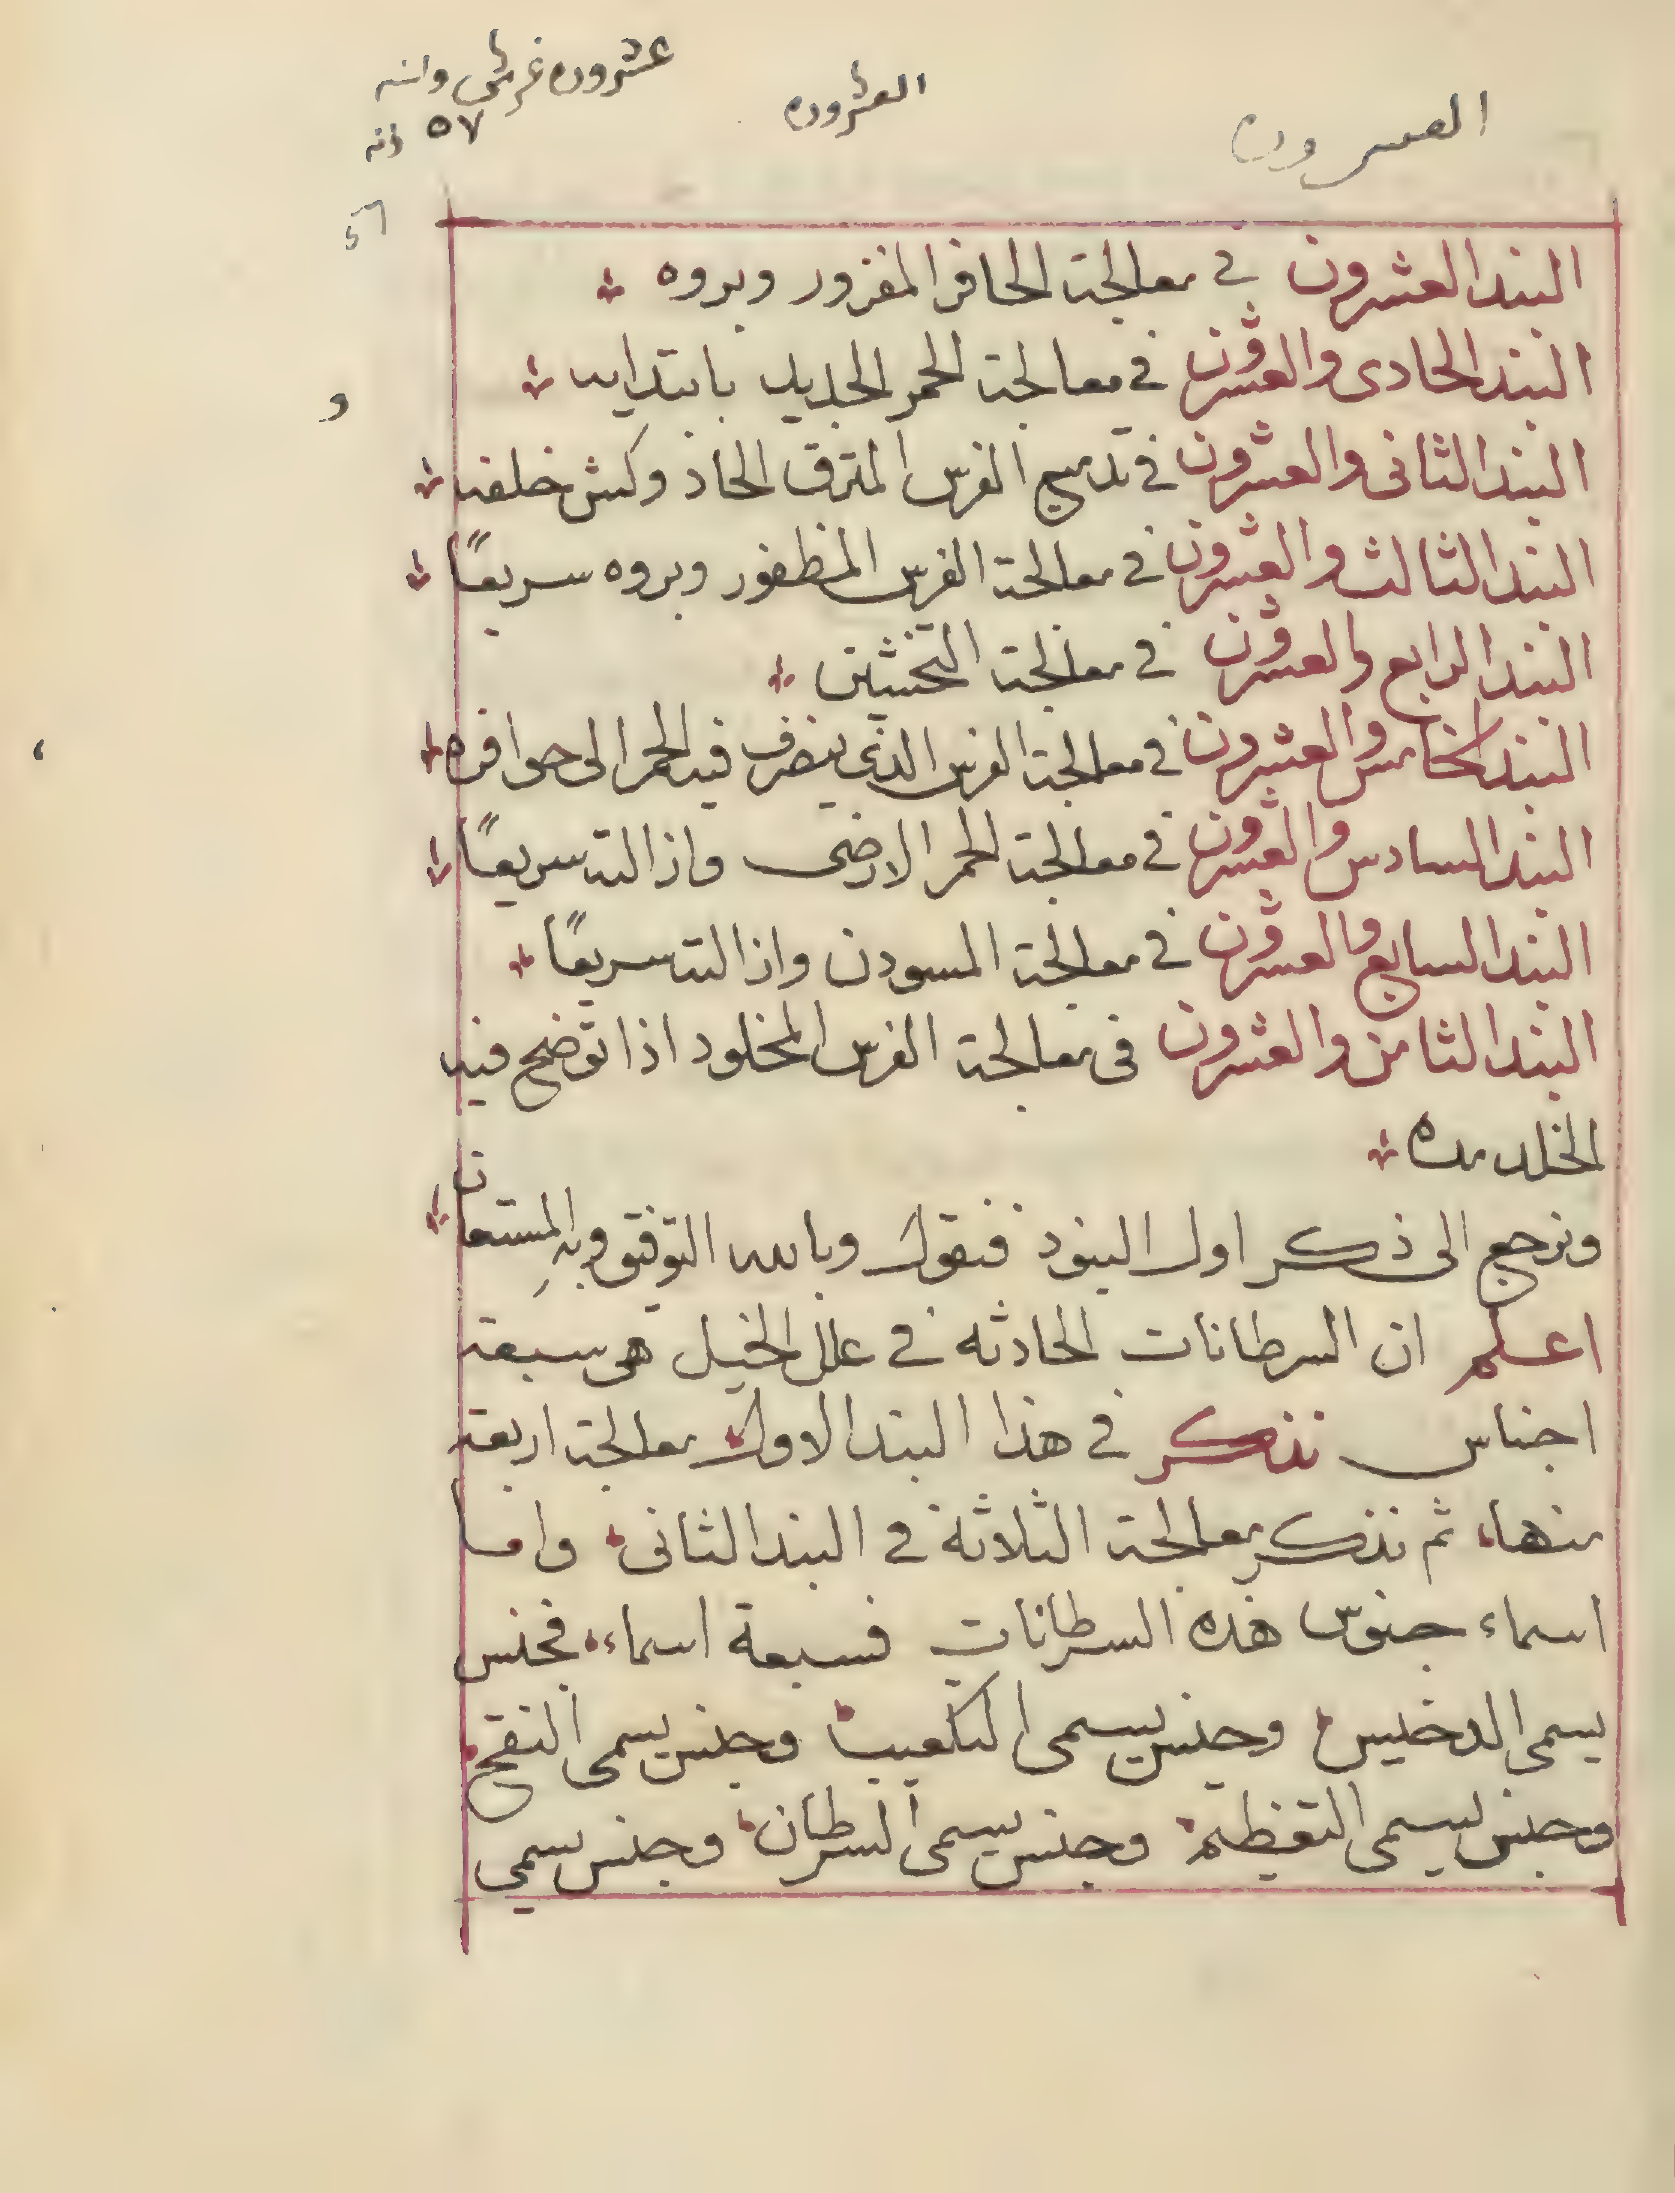 العشرون
العشرون
عشرون غرش
٥٧
البند العشرون في معالجة الحافر المفزور وبروه
البند الحادى والعشرون في معالجة الحمر الجديد بابتدايه
البند الثانى والعشرون في تدبيج الفرس المترق الحاذ وكش خلفه
البند الثالث والعشرون في معالجة الفرس المظفور وبروه سريعًا
البند الرابع والعشرون في معالجة التخشين
البند الخامس والعشرون في معالجة الفرس الذى ينصرف فيه الحمر الى حوافره
البند السادس والعشرون في معالجة الحمر الارضى واذالته سريعًا
البند السابع والعشرون في معالجة المسودن واذالته سريعًا
البند الثامن والعشرون فى معالجة الفرس المخلود اذا توضح فيه
الخلد مده
ونرجع الى ذكر اول البنود فنقول وبالله التوفيق وبه المستعان
اعلم ان السرطانات الحادثه في علل الخيل هى سبعة
اجناس نذكر في هذا البند الاول معالجة اربعة
منها، ثم نذكر معالجة الثلاثة في البند الثانى واما
اسماء جنوس هذه السرطانات فسبعة اسماء، فجنس
يسمى الدخيس وجنس يسمى التكعيب وجنس يسمى النقح
وجنس يسمى التعظيم وجنس يسمى السرطان وجنس يسمى